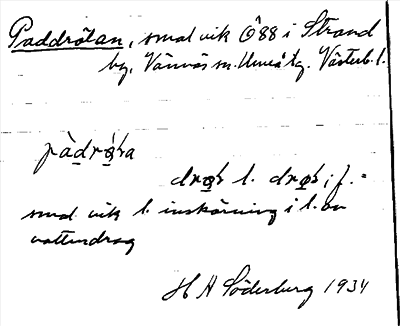 Paddrötan, smal vik Ö88 i Strand
by, Vännäs sn. Umeå tg. Västerb. l.
drøt l. drøt, f. =
smal vik l. inskärning i l. av
vattendrag
H A Söderberg 1934